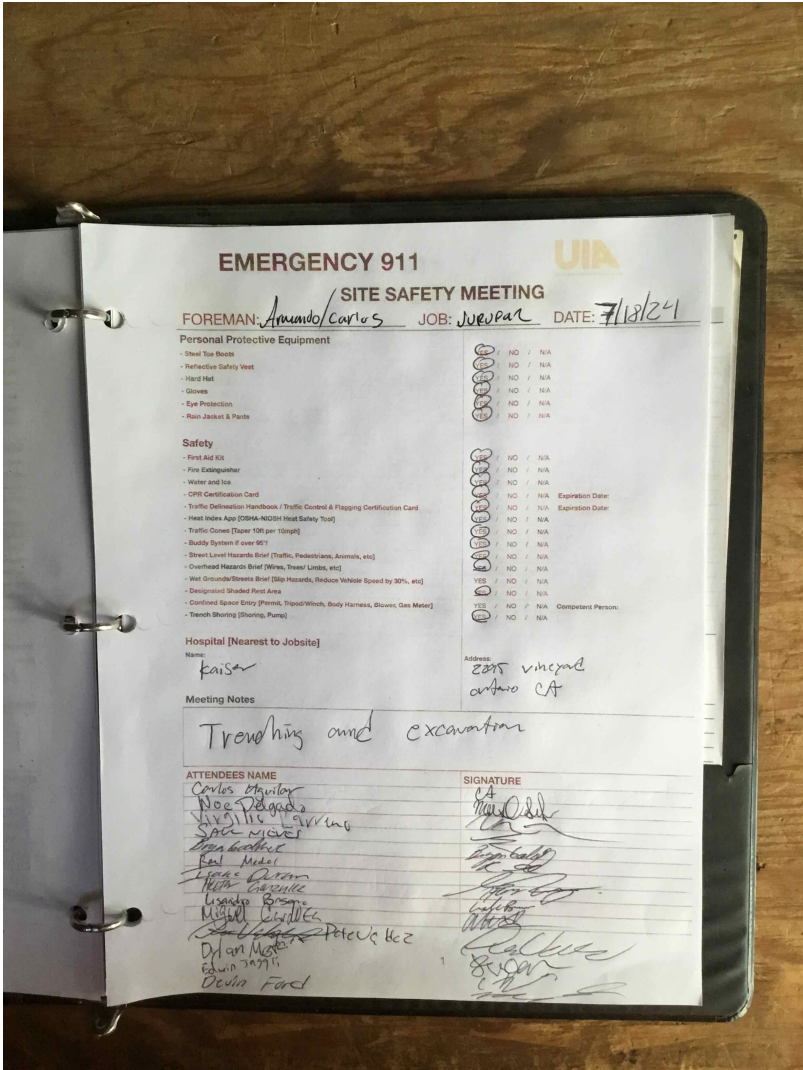 EMERGENCY 911
UIA
SITE SAFETY MEETING
FOREMAN: Armando/Carlos JOB: JURUPAR DATE: 7/18/24
Personal Protective Equipment
- Steel Toe Boots YES / NO / N/A
- Reflective Safety Vest YES / NO / N/A
- Hard Hat YES / NO / N/A
- Gloves YES / NO / N/A
- Eye Protection YES / NO / N/A
- Rain Jacket & Pants YES / NO / N/A
Safety
- First Aid Kit YES / NO / N/A
- Fire Extinguisher YES / NO / N/A
- Water and Ice YES / NO / N/A
- CPR Certification Card YES / NO / N/A Expiration Date:
- Traffic Delineation Handbook / Traffic Control & Flagging Certification Card YES / NO / N/A Expiration Date:
- Heat Index App [OSHA-NIOSH Heat Safety Tool] YES / NO / N/A
- Traffic Cones [Taper 10ft per 10mph] YES / NO / N/A
- Buddy System if over 95°f YES / NO / N/A
- Street Level Hazards Brief [Traffic, Pedestrians, Animals, etc] YES / NO / N/A
- Overhead Hazards Brief [Wires, Trees/ Limbs, etc] YES / NO / N/A
- Wet Grounds/Streets Brief [Slip Hazards, Reduce Vehicle Speed by 30%, etc] YES / NO / N/A
- Designated Shaded Rest Area YES / NO / N/A
- Confined Space Entry [Permit, Tripod/Winch, Body Harness, Blower, Gas Meter] YES / NO / N/A Competent Person:
- Trench Shoring [Shoring, Pump] YES / NO / N/A
Hospital [Nearest to Jobsite]
Name: Address:
Kaiser 2295 vineyard
ontario CA
Meeting Notes
Trenching and excavation
ATTENDEES NAME SIGNATURE
Carlos Aguilar CA
Noe Delgado
Virgilio
SAUL NIEVES
Raul Medel
Isaac Duran
Hector
Lisandro
Miguel
Dylan
Edwin
Devin Ford
1